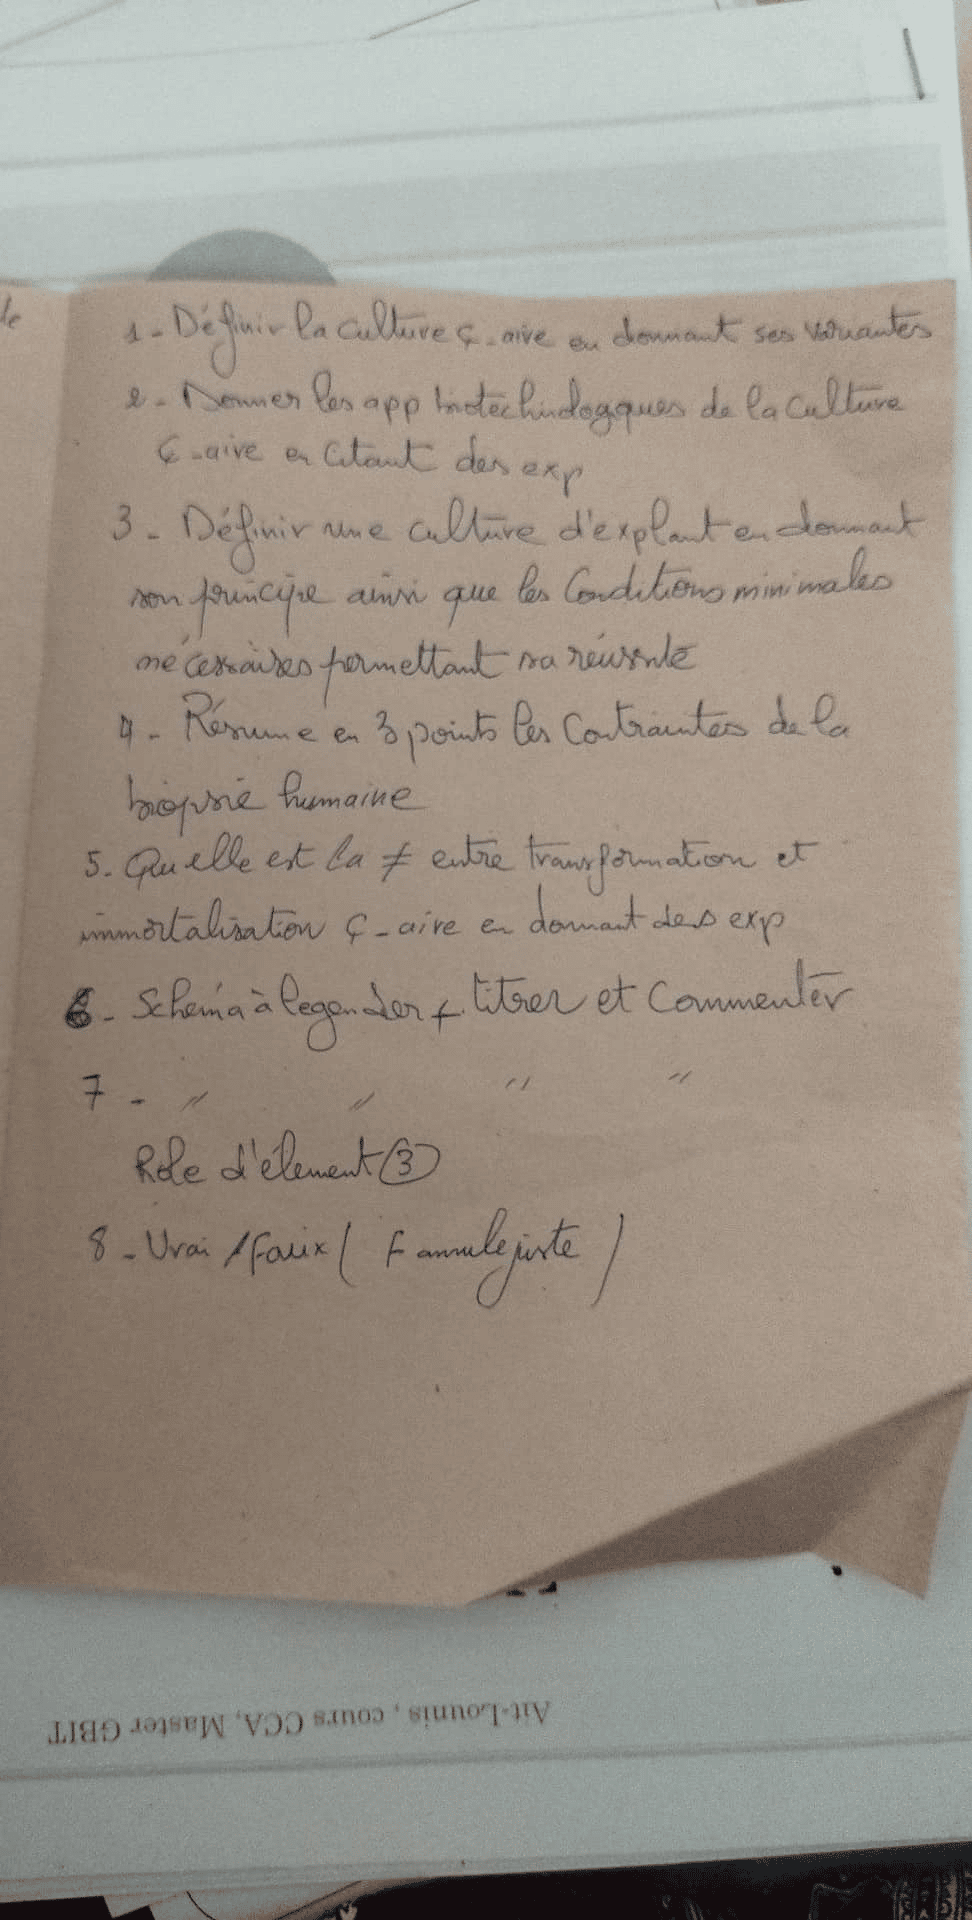 le
1 - Définir la culture ç-aire en donnant ses variantes
2 - Donner les app biotechnologques de la culture
ç-aire en citant des exp
3 - Définir une culture d'explant en donnant
son principe ainsi que les Conditions minimales
nécessaires permettant sa réussite
4 - Résume en 3 points les Contraintes de la
biopsie humaine
5. Quelle est la ≠ entre transformation et
immortalisation ç-aire en donnant des exp
6 - Schéma à legender + titrer et Commenter
7 - " " " "
Role d'élement ③
8 - Vrai / Faux ( F annule juste )
Ait-Lounis, cours CCA, Master GBIT